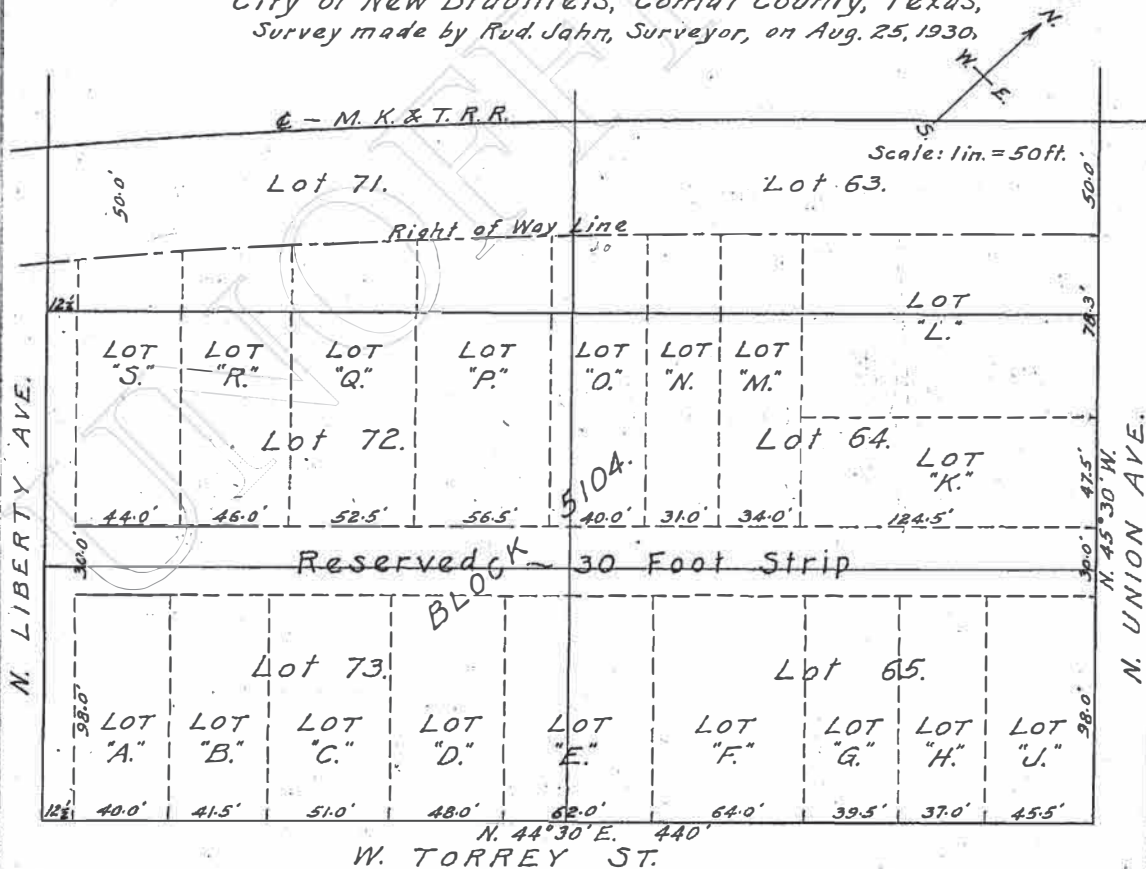 City of New Braunfels, Comal County, Texas,
Survey made by Rud. Jahn, Surveyor, on Aug. 25, 1930,
N.
W. E.
S.
℄ - M. K. & T. R. R.
Scale: 1in. = 50ft.
50.0'
Lot 71.
Lot 63.
50.0'
Right of Way Line
12½
LOT "L."
78.3'
LOT "S."
LOT "R."
LOT "Q."
LOT "P."
LOT "O."
LOT "N."
LOT "M."
Lot 72.
Lot 64.
LOT "K."
47.5'
44.0' 46.0' 52.5' 56.5' 40.0' 31.0' 34.0' 124.5'
BLOCK 5104.
30.0'
Reserved ~ 30 Foot Strip
30.0'
N. 45° 30' W.
N. LIBERTY AVE.
N. UNION AVE.
Lot 73.
Lot 65.
98.0'
98.0'
LOT "A."
LOT "B."
LOT "C."
LOT "D."
LOT "E."
LOT "F."
LOT "G."
LOT "H."
LOT "J."
12½ 40.0' 41.5' 51.0' 48.0' 62.0' 64.0' 39.5' 37.0' 45.5'
N. 44° 30' E. 440'
W. TORREY ST.